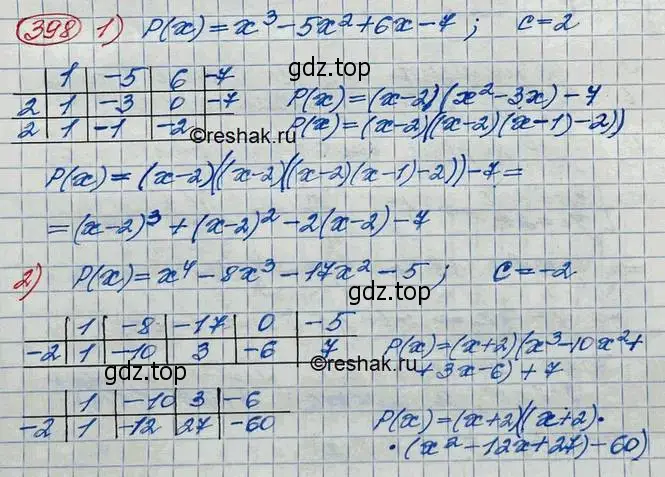 398 1) P(x) = x³ - 5x² + 6x - 7 ; c = 2
gdz.top
1 | -5 | 6 | -7
2 | 1 | -3 | 0 | -7 P(x) = (x-2)(x² - 3x) - 7
2 | 1 | -1 | -2 P(x) = (x-2)((x-2)(x-1)-2))
©reshak.ru
P(x) = (x-2)((x-2)((x-2)(x-1)-2))-7 =
= (x-2)³ + (x-2)² - 2(x-2) - 7
2) P(x) = x⁴ - 8x³ - 17x² - 5 ; c = -2
gdz.top
1 | -8 | -17 | 0 | -5
-2 | 1 | -10 | 3 | -6 | 7 P(x) = (x+2)(x³-10x²+
+ 3x - 6) + 7
©reshak.ru
gdz.top
1 | -10 | 3 | -6
-2 | 1 | -12 | 27 | -60 P(x) = (x+2)((x+2)·
·(x² - 12x + 27) - 60)
gdz.top